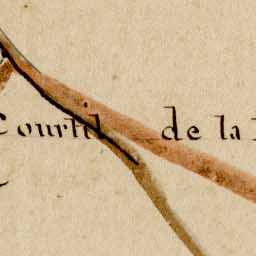 Courtil de la